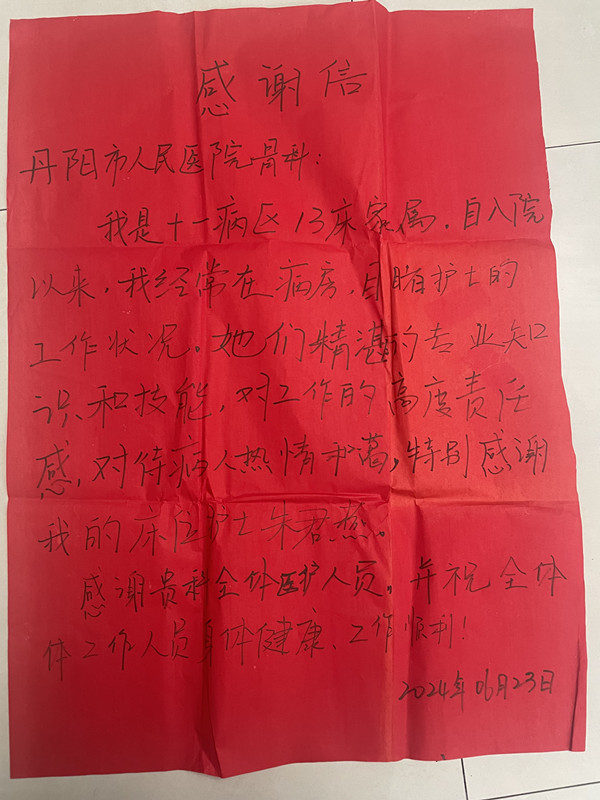 感谢信
丹阳市人民医院骨科:
我是十一病区13床家属,自入院
以来,我经常在病房,目睹护士的
工作状况。她们精湛的专业知
识和技能,对工作的高度责任
感,对待病人热情和蔼,特别感谢
我的床位护士朱君燕。
感谢贵科全体医护人员,并祝全体
体工作人员身体健康、工作顺利!
2024年06月23日